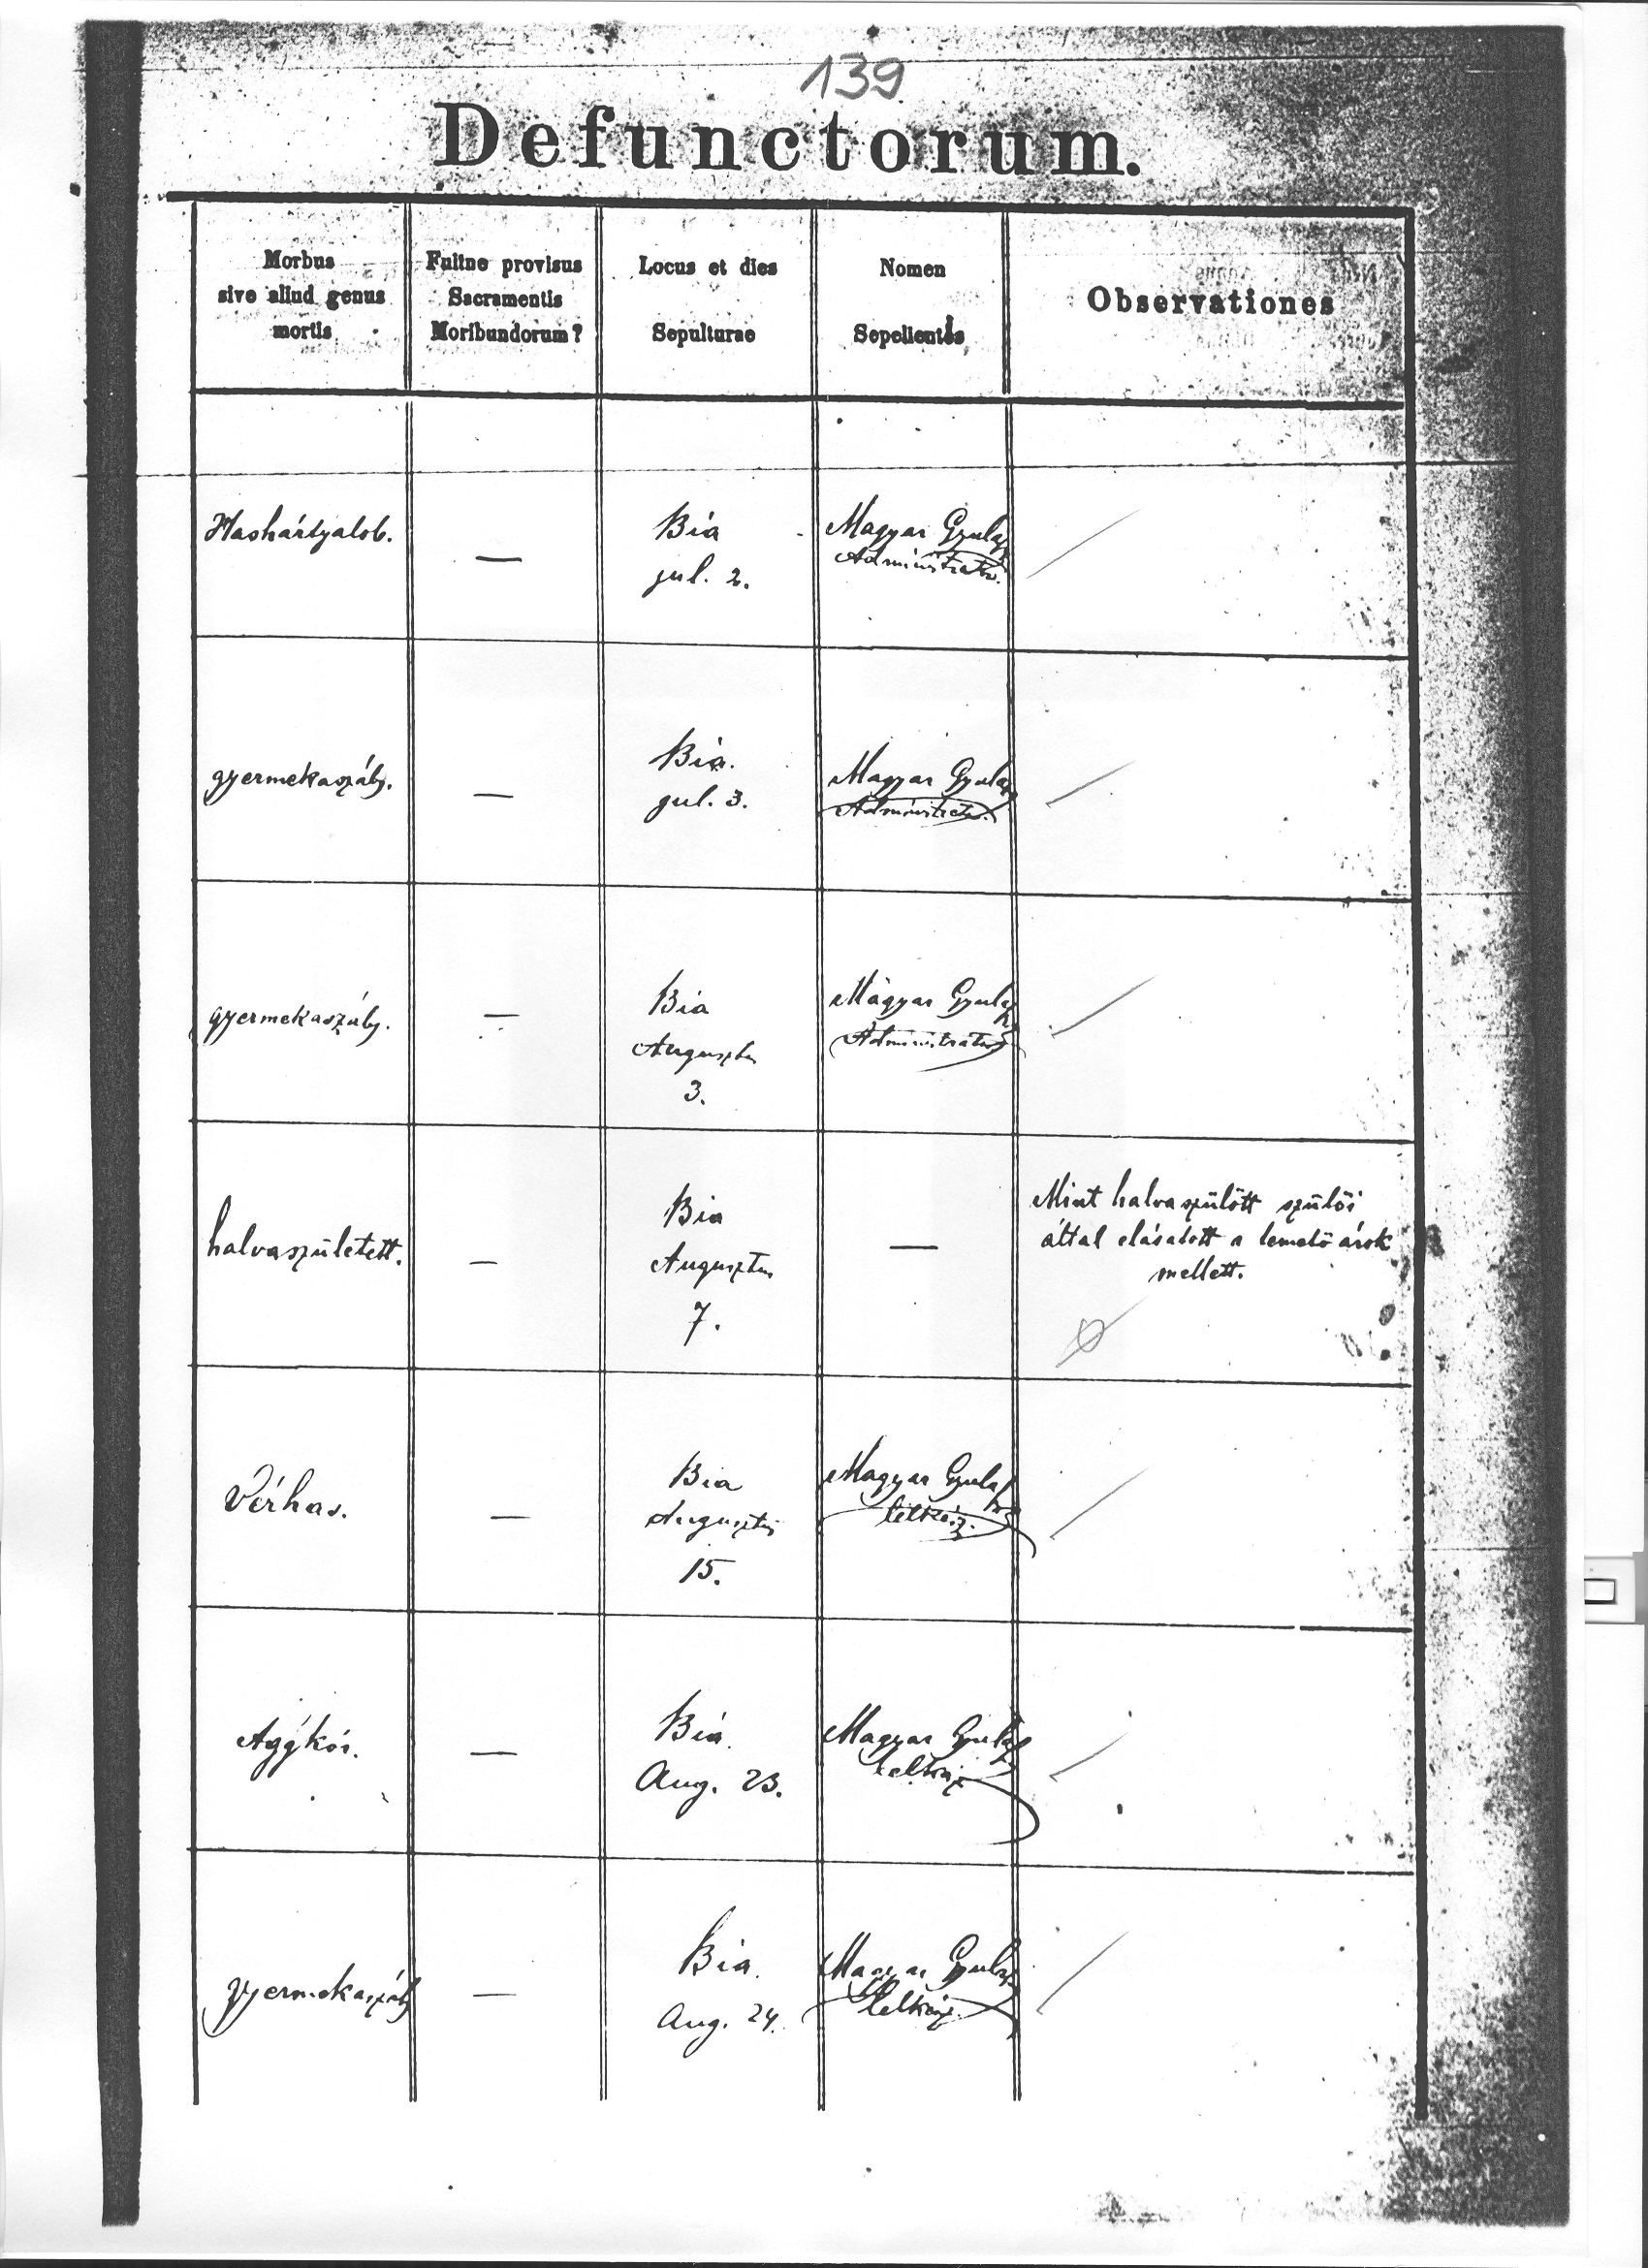 139
Defunctorum.
Morbus
sive aliud genus
mortis
Fuitne provisus
Sacramentis
Moribundorum?
Locus et dies
Sepulturae
Nomen
Sepelientis
Observationes
Hashártyalob.
—
Bia
jul. 2.
Magyar Gyula
Administrator.
gyermekaszály.
—
Bia.
jul. 3.
Magyar Gyula
Administrator.
gyermekaszály.
—
Bia
Augusztus
3.
Magyar Gyula
Administrator
halvaszületett.
—
Bia
Augusztus
7.
—
Mint halvaszülött szülői
által elásatott a temető árok
mellett.
Vérhas.
—
Bia
Augusztus
15.
Magyar Gyula
lelkész.
Aggkór.
—
Bia.
Aug. 23.
Magyar Gyula
lelkész
gyermekaszály
—
Bia.
Aug. 24.
Magyar Gyula
lelkész.